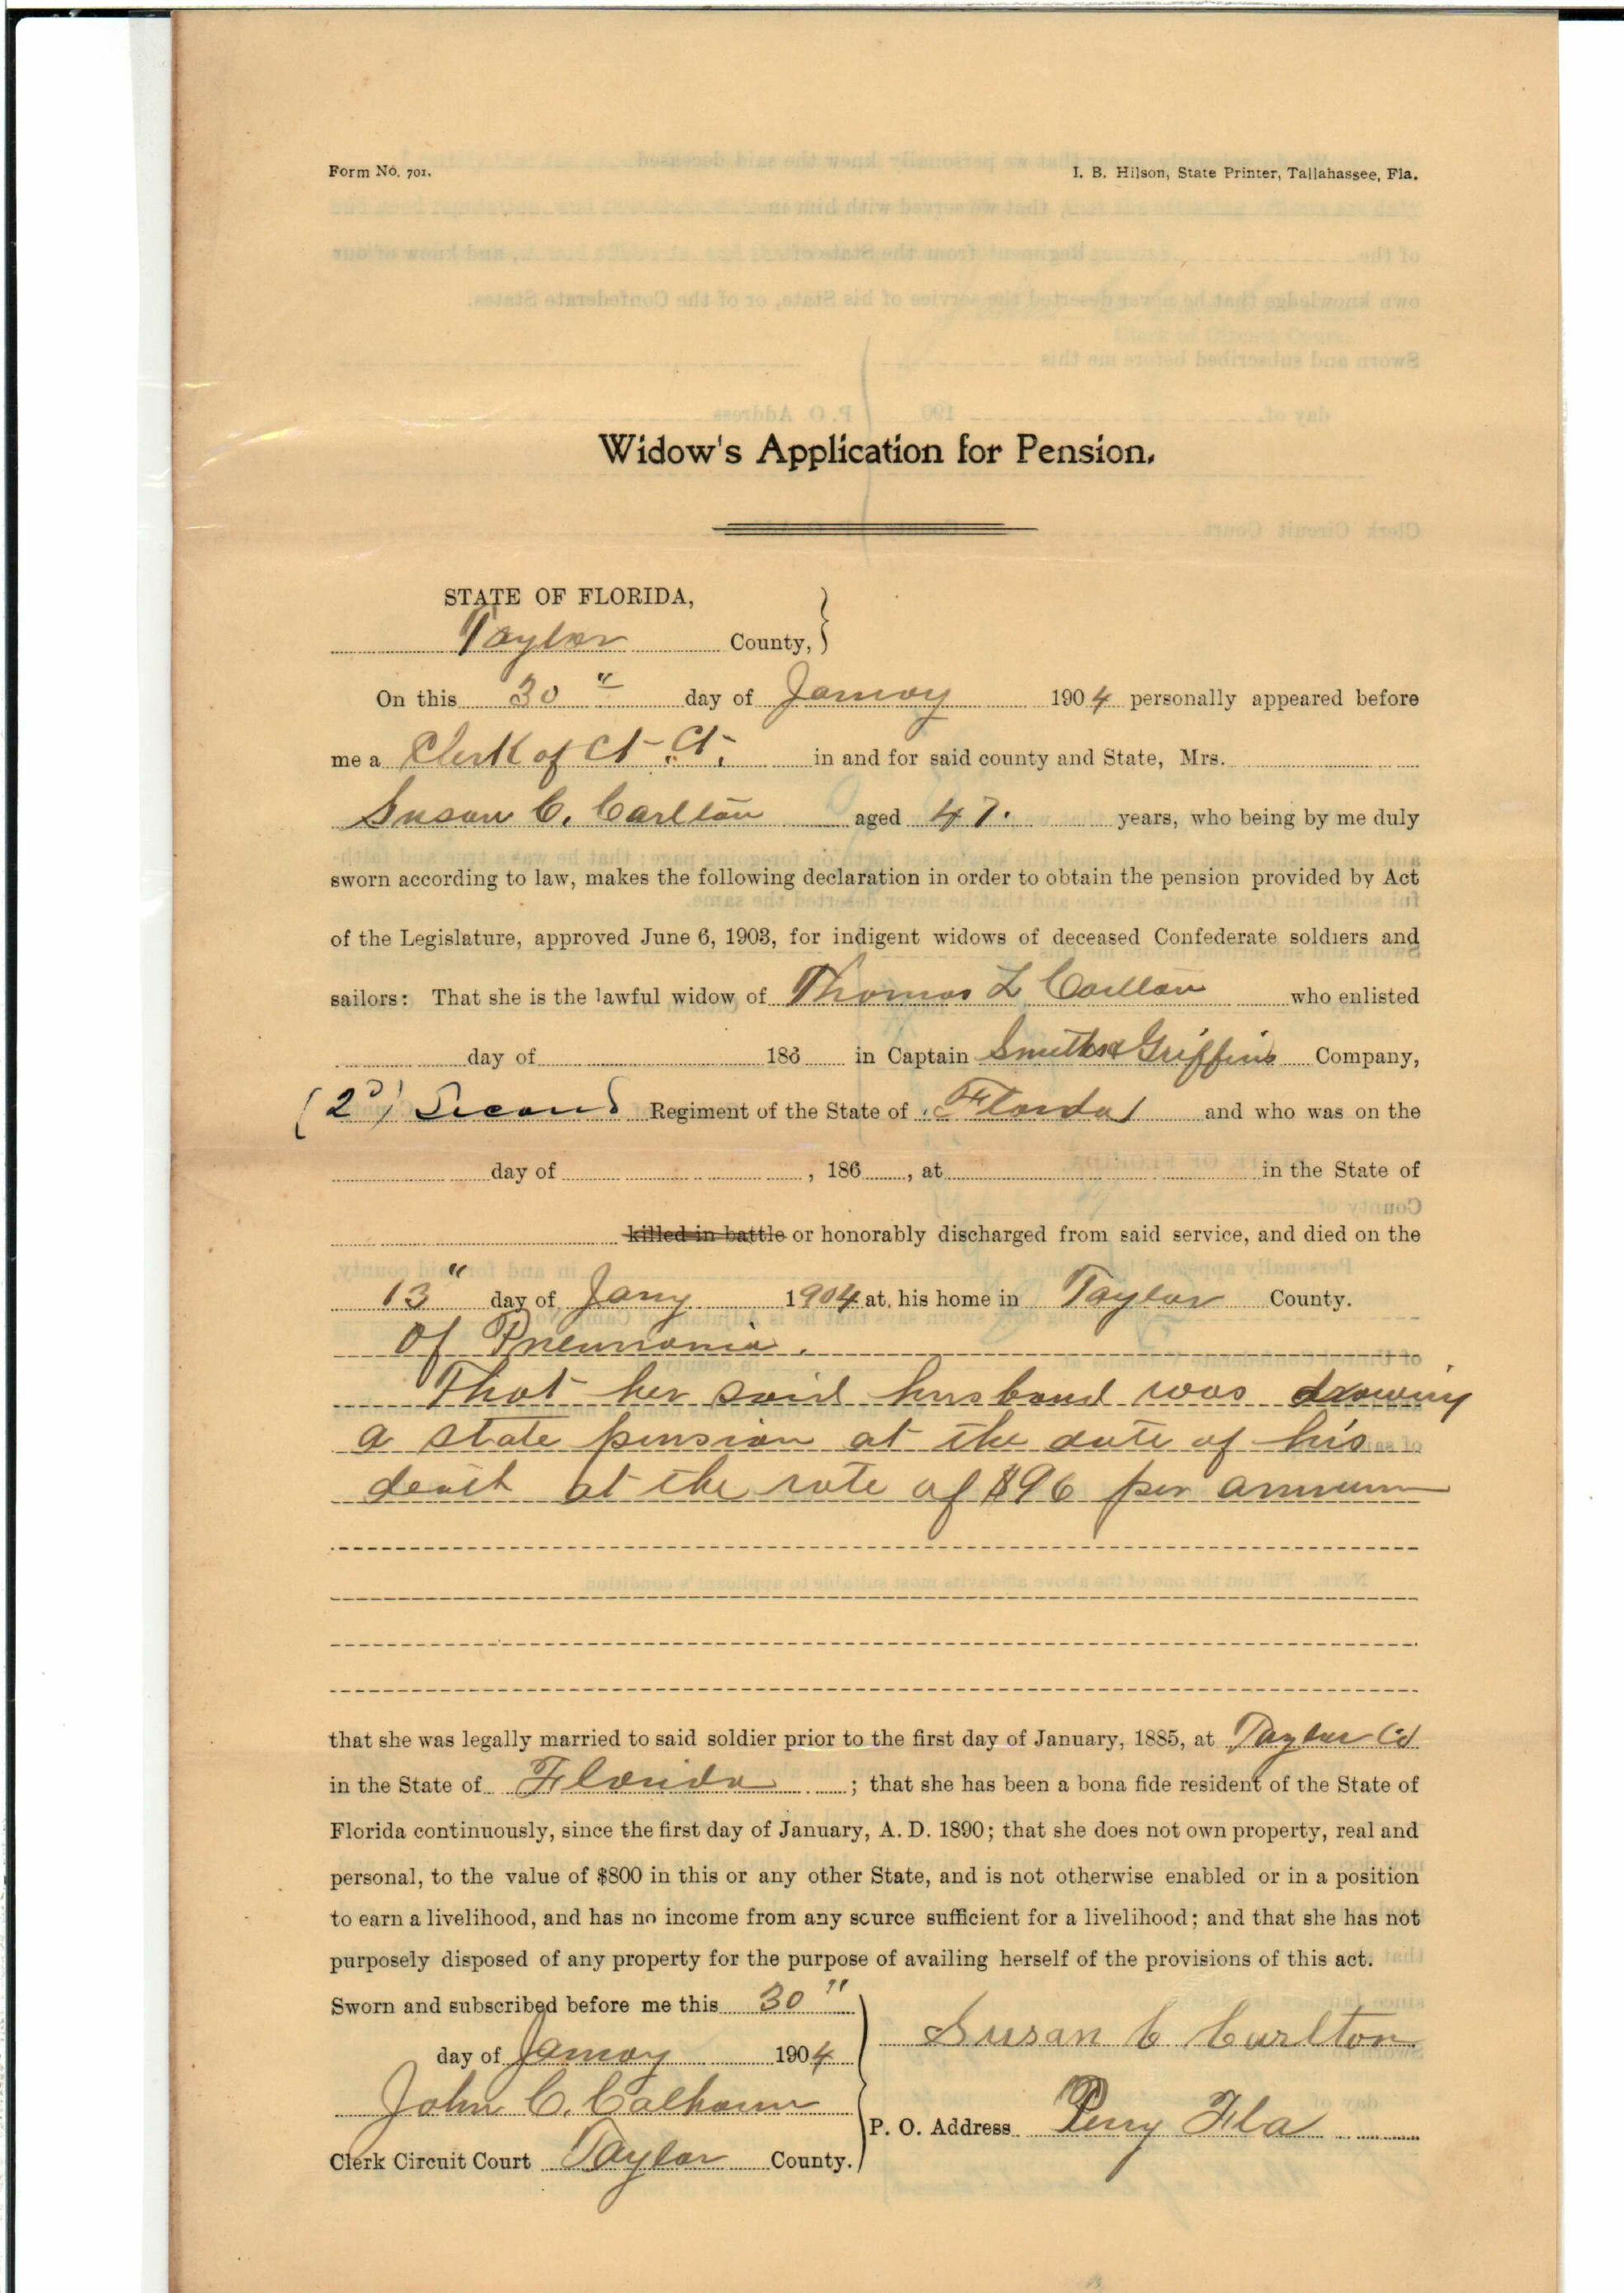 Form No. 701.
I. B. Hilson, State Printer, Tallahassee, Fla.
Widow's Application for Pension.
STATE OF FLORIDA,
Taylor County, }
On this 30" day of Januay 1904 personally appeared before
me a Clerk of Ct. Ct. in and for said county and State, Mrs.
Susan C. Carlton aged 47. years, who being by me duly
sworn according to law, makes the following declaration in order to obtain the pension provided by Act
of the Legislature, approved June 6, 1903, for indigent widows of deceased Confederate soldiers and
sailors: That she is the lawful widow of Thomas L Carlton who enlisted
day of 186 in Captain Smith & Griffins Company,
(2d) Second Regiment of the State of Florida and who was on the
day of , 186 , at in the State of
killed in battle or honorably discharged from said service, and died on the
13" day of Jany 1904 at his home in Taylor County.
of Pneumonia.
That her said husband was drawing
a state pension at the date of his
death at the rate of $96 per annum
that she was legally married to said soldier prior to the first day of January, 1885, at Taylor Co
in the State of Florida ; that she has been a bona fide resident of the State of
Florida continuously, since the first day of January, A. D. 1890; that she does not own property, real and
personal, to the value of $800 in this or any other State, and is not otherwise enabled or in a position
to earn a livelihood, and has no income from any source sufficient for a livelihood; and that she has not
purposely disposed of any property for the purpose of availing herself of the provisions of this act.
Sworn and subscribed before me this 30"
day of Januay 1904
Susan C Carlton
John C. Calhoun
P. O. Address Perry Fla
Clerk Circuit Court Taylor County.